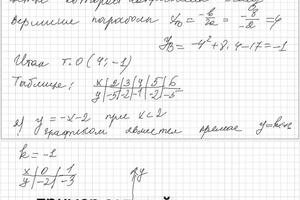 вершине параболы x₀ = -b/2a = -8/-2 = 4
y_B = -4² + 8·4 - 17 = -1
Итак т. O (4; -1)
Таблица: x|2|3|4|5|6
y|-5|-2|-1|-2|-5
y = -x-2 при x<2
графиком является прямая y=kx+b
k = -1
x|0|1
y|-2|-3
y